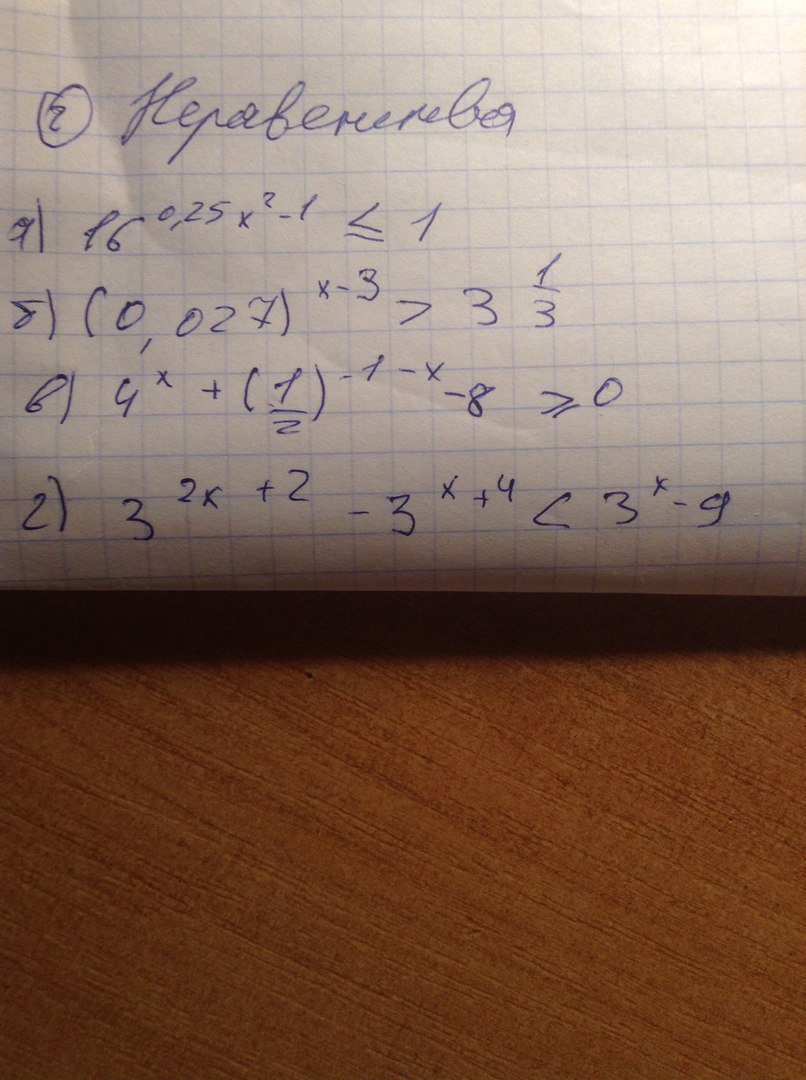 ② Неравенства
а) 16^(0,25x²-1) ≤ 1
б) (0,027)^(x-3) > 3 1/3
в) 4^x + (1/2)^(-1-x) - 8 ≥ 0
г) 3^(2x+2) - 3^(x+4) < 3^x - 9